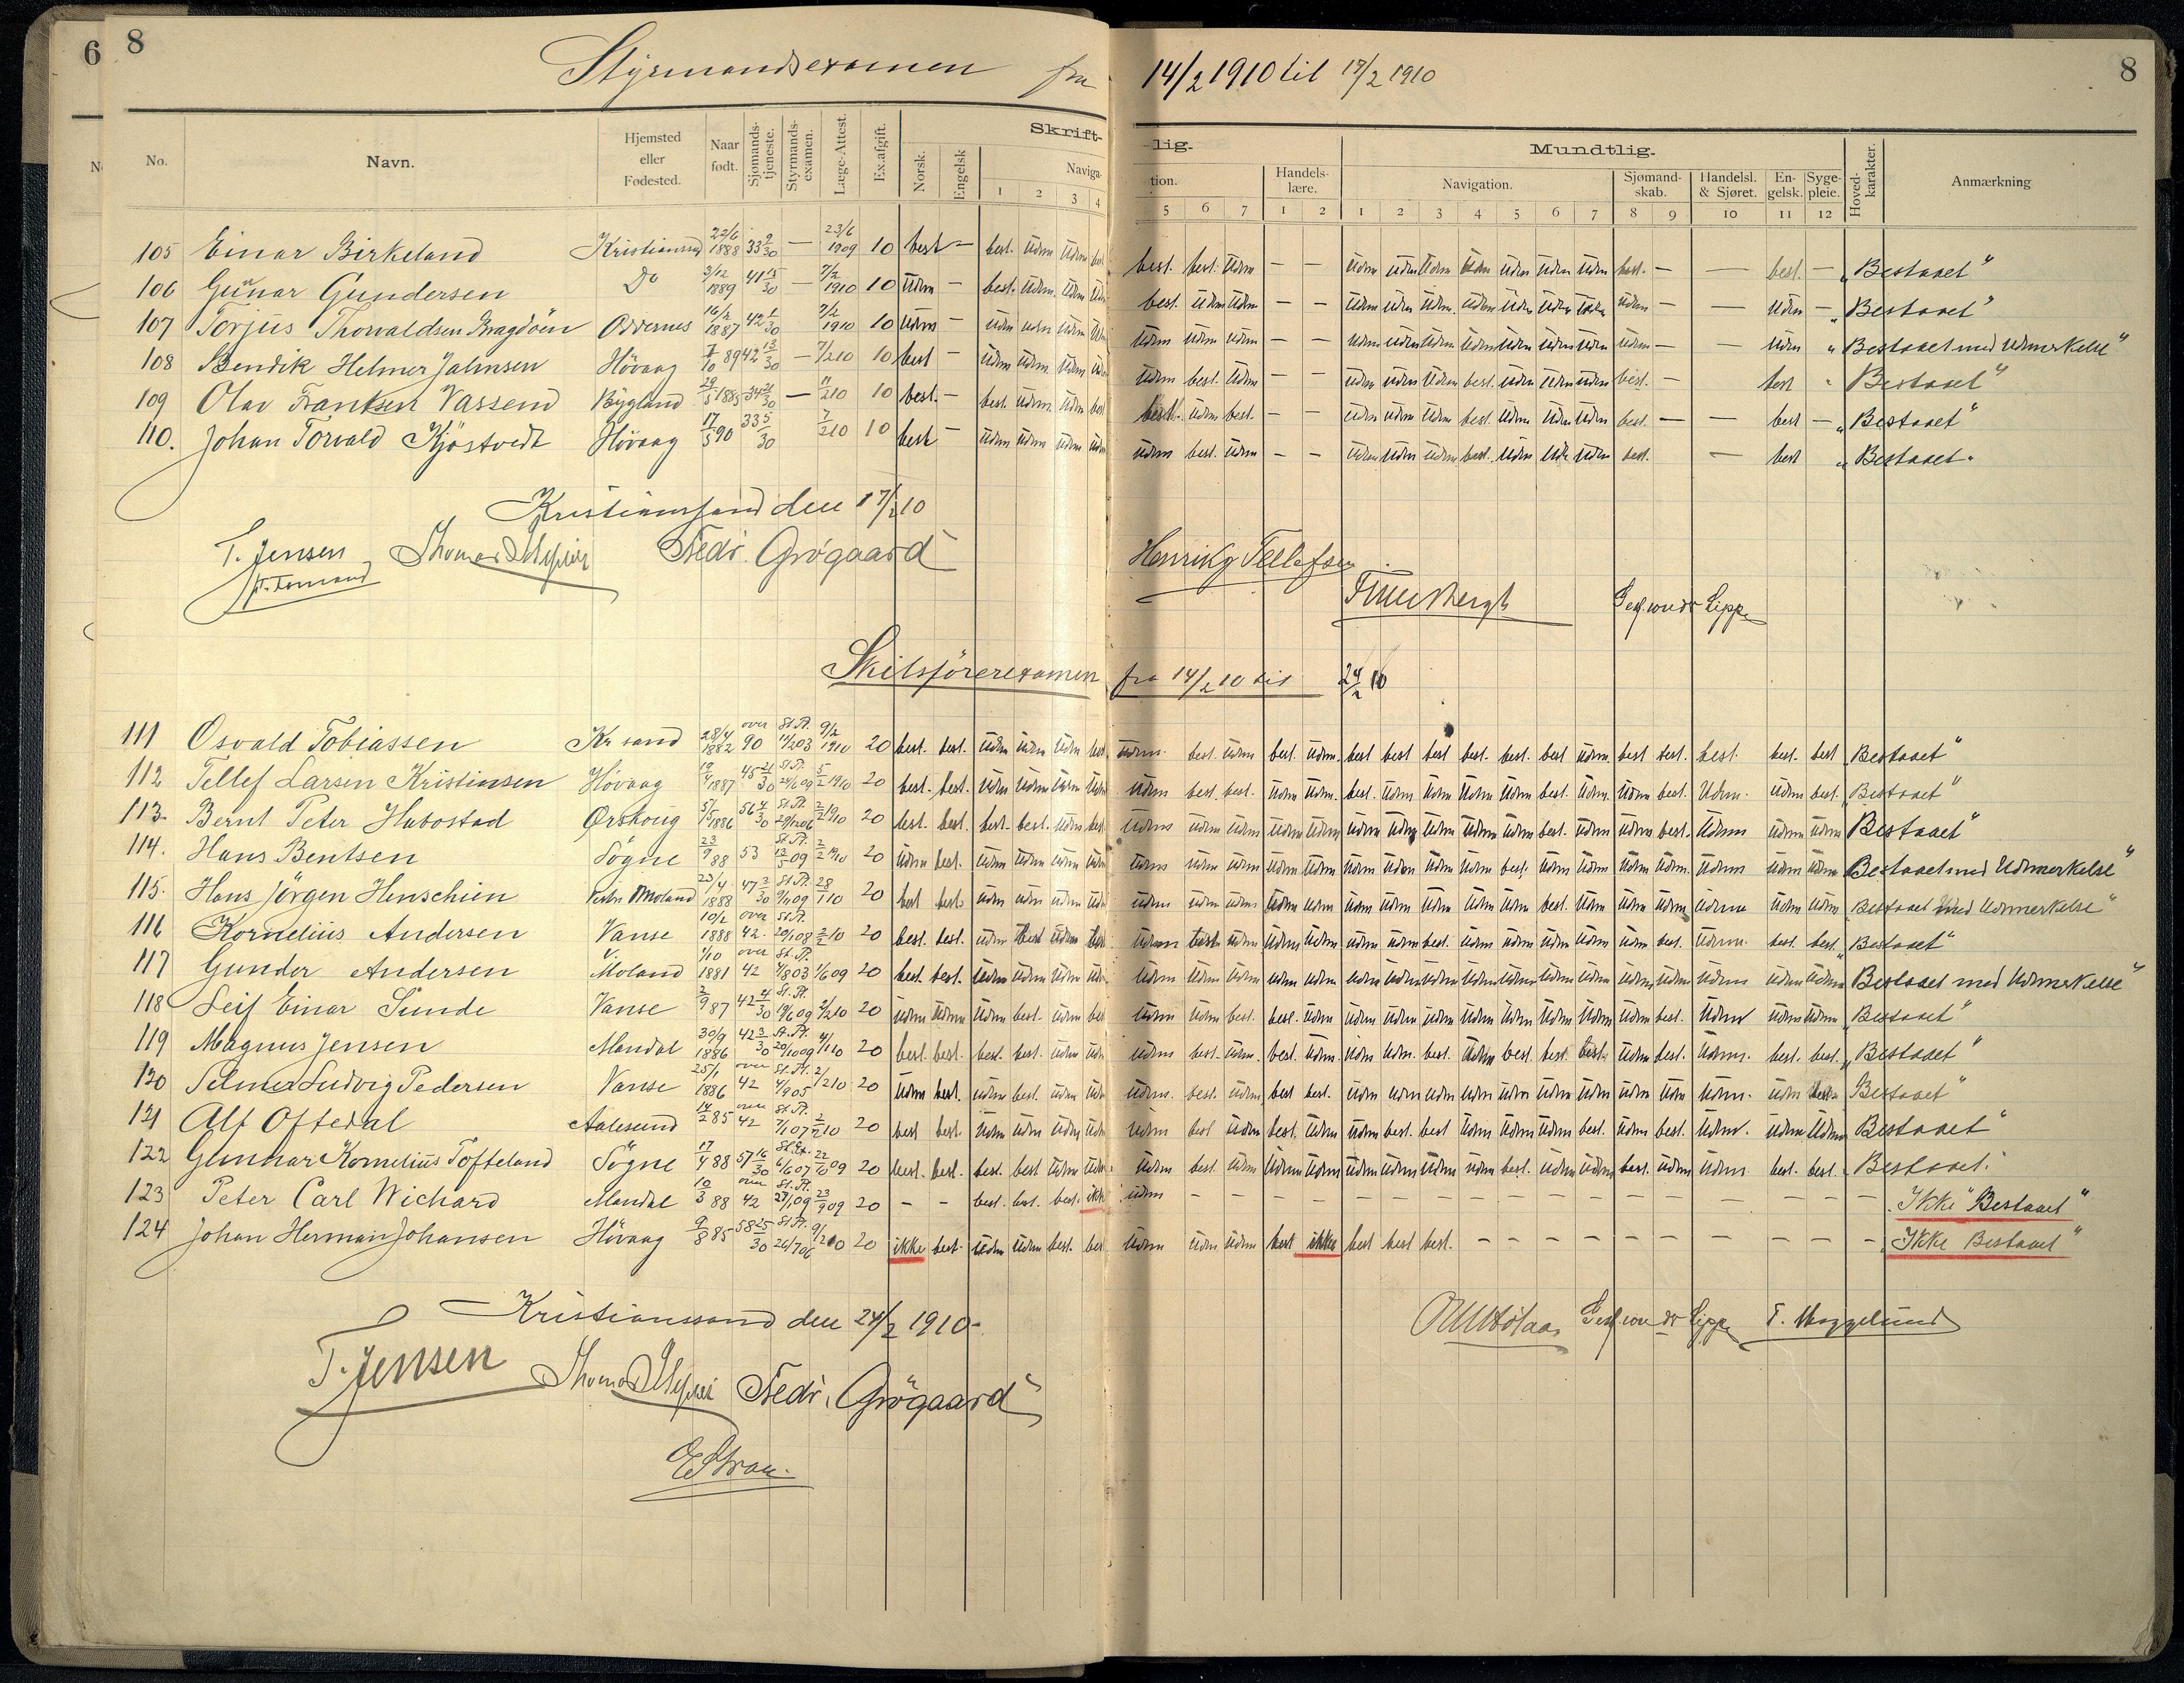 6 8 Styrmandsexamen fra 14/2 1910 til 17/2 1910 8
No. Navn. Hjemsted eller Fødested. Naar født. Sjømands-tjeneste. Styrmands-examen. Læge-Attest. Ex.afgift. Skrift-lig. Mundtlig. Hoved-karakter. Anmærkning
Norsk. Engelsk Naviga-tion. Handels-lære. Navigation. Sjømand-skab. Handelsl. & Sjøret. En-gelsk. Syge-pleie.
1 2 3 4 5 6 7 1 2 1 2 3 4 5 6 7 8 9 10 11 12
105 Einar Birkeland Kristianssand 22/6 1888 33 9/30 — 23/6 1909 10 best — best. Udm Udm best best. best. Udm — — Udm Udm Udm Udm Udm Udm Udm best. — — best. — „Bestaaet"
106 Gunar Gundersen Do 3/12 1889 41 15/30 — 7/2 1910 10 Udm — best. Udm. Udm Udm best. Udm Udm — — Udm Udm Udm. Udm Udm Udm Udm Udm — — Udm — „Bestaaet"
107 Torjus Thorvaldsen Kragdøen Oddernes 16/2 1887 42 1/30 7/2 1910 10 Udm — Udm Udm Udm Udm Udm Udm Udm — — Udm Udm Udm Udm Udm Udm Udm Udm — — Udm „Bestaaet med Udmerkelse"
108 Bendik Helmer Jahnsen Høvaag 7/10 89 42 13/30 — 7/2 10 10 best — Udm Udm Udm Udm Udm best. Udm — — Udm Udm Udm best. Udm Udm Udm best. — best „Bestaaet"
109 Olav Franksen Vassend Bygland 29/5 1885 34 21/30 — 11/2 10 10 best. — best. Udm Udm best best. Udm best. — — Udm Udm Udm best Udm Udm Udm best. — — best — „Bestaaet"
110. Johan Torvald Kjøstvedt Høvaag 17/5 90 33 5/30 7/2 10 10 best — Udm Udm Udm Udm Udm best. Udm — — Udm Udm Udm best. Udm Udm Udm best. — best „Bestaaet"
Kristianssand den 17/2 10
T. Jensen Fredr. Grøgaard Henrik Tellefsen
von der Lippe
Skibsførerexamen fra 14/2 10 til 24/2 10
111 Osvald Tobiassen Kr sand 28/4 1882 over 90 St. Pt. 11/2 03 9/2 1910 20 best. best. Udm Udm Udm best. Udm. best. Udm best Udm. best best best best. best. best Udm. best best. best. best. best „Bestaaet"
112 Tellef Larsen Kristinsen Høvaag 19/4 1887 45 21/30 St. Pt. 24/6 09 5/2 1910 20 best. best. Udm Udm Udm Udm Udm best. best. Udm Udm. best. Udm Udm Udm Udm best. Udm. Udm best. Udm. Udm best. „Bestaaet"
113. Bernt Peter Habostad Ørskoug 5/5 1886 56 4/30 St. Pt. 29/12 06 2/2 1910 20 best. best. best. best. Udm best Udm Udm Udm Udm Udm Udm Udm Udm Udm Udm best. Udm Udm best. Udm Udm Udm „Bestaaet"
114. Hans Bentsen Søgne 23/9 88 53 St. Pt. 13/5 09 2/2 1910 20 Udm best. Udm Udm Udm Udm Udm Udm Udm Udm Udm Udm Udm Udm Udm best. Udm Udm Udm Udm Udm Udm Udm „Bestaaet med Udmerkelse"
115. Hans Jørgen Henschien Vestre Moland 23/4 1888 47 3/30 St. Pt. 9/1 09 28/1 10 20 best best. Udm Udm Udm Udm Udm Udm Udm Udm Udm Udm Udm Udm Udm Udm best. Udm Udm Udm Udm Udm Udm „Bestaaet med Udmerkelse"
116 Kornelius Andersen Vanse 10/2 1888 over 42. St. Pt. 20/1 08 2/2 10 20 best. best. Udm best Udm best Udm best Udm Udm Udm Udm Udm best. Udm Udm Udm Udm Udm best. Udm. best. best. „Bestaaet"
117 Gunder Andersen V. Moland 1/10 1881 over 42 St. Pt. 4/8 03 1/6 09 20 best. best. Udm Udm Udm Udm Udm Udm Udm Udm Udm Udm Udm Udm Udm Udm Udm Udm Udm Udm Udm Udm Udm „Bestaaet med Udmerkelse"
118 Leif Einar Sunde Vanse 2/9 87 42 21/30 St. Pt. 19/6 09 2/2 10 20 Udm Udm Udm best. Udm best Udm Udm best. best. Udm Udm Udm Udm Udm Udm Udm Udm Udm best. Udm Udm Udm „Bestaaet"
119 Magnus Jensen Mandal 30/9 1886 42 3/30 St. Pt. 20/10 09 4/1 10 20 best. best. best. best. Udm Udm Udm best. Udm. best Udm. Udm Udm. best. Udm best. best. best. Udm best. Udm. best. best. „Bestaaet"
120 Selmer Ludvig Pedersen Vanse 25/1 1886 over 42 St. Pt. 4/9 05 2/2 10 20 Udm best. Udm best. Udm Udm Udm. best. Udm best best. Udm Udm Udm Udm Udm Udm Udm Udm Udm Udm. Udm „Bestaaet"
121 Alf Oftedal Aalesund 14/2 85 over 42 St. Pt. 7/1 07 2/2 10 20 best best. Udm Udm Udm Udm Udm best Udm best. Udm Udm best. best Udm Udm Udm best. Udm best. Udm. Udm Udm „Bestaaet"
122 Gunnar Kornelius Tofteland Søgne 17/4 88 57 16/30 St. Ex. 6/6 07 22/10 09 20 best. best. best. best Udm Udm Udm best. Udm Udm Udm Udm Udm Udm Udm best. Udm Udm best. Udm Udm. best. best. „Bestaaet"
123 Peter Carl Wichard Mandal 10/3 88 over 42 St. Pt. 27/1 09 23/9 09 20 — — best. best. best. ikke Udm — — — — — — — — — — — — — — — — „Ikke "Bestaaet"
124 Johan Herman Johansen Høvaag 9/8 85 58 25/30 St. Pt. 26/7 06 9/2 10 20 ikke best. Udm Udm best. best Udm Udm Udm best ikke best best best. — — — — — — — — — „Ikke Bestaaet"
Kristianssand den 24/2 1910.
T. Jensen Fredr. Grøgaard von der Lippe